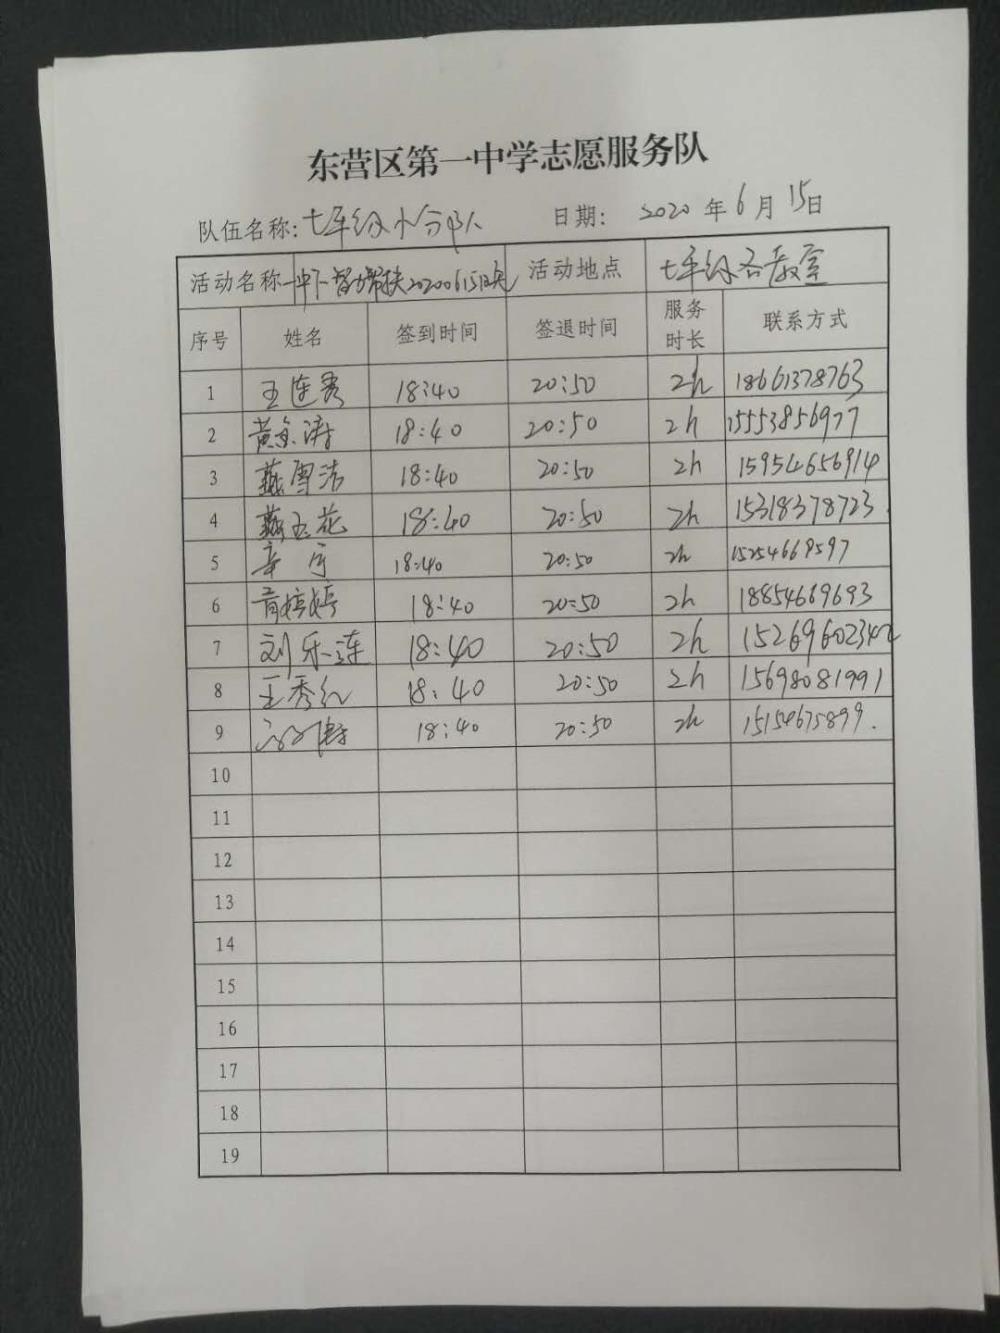 东营区第一中学志愿服务队
队伍名称: 七年级小分队 日期: 2020 年 6 月 15 日
活动名称 一中下智力帮扶20200615 活动地点 七年级各教室
序号 姓名 签到时间 签退时间 服务时长 联系方式
1 王连秀 18:40 20:50 2h 18661378763
2 黄 涛 18:40 20:50 2h 15553856977
3 燕雪洁 18:40 20:50 2h 15954656914
4 燕玉花 18:40 20:50 2h 15318378723.
5 辛 18:40 20:50 2h 15254668597
6 18:40 20:50 2h 18854669693
7 刘乐莲 18:40 20:50 2h
8 王秀红 18:40 20:50 2h 15698081991
9 18:40 20:50 2h 15154675899.
10
11
12
13
14
15
16
17
18
19